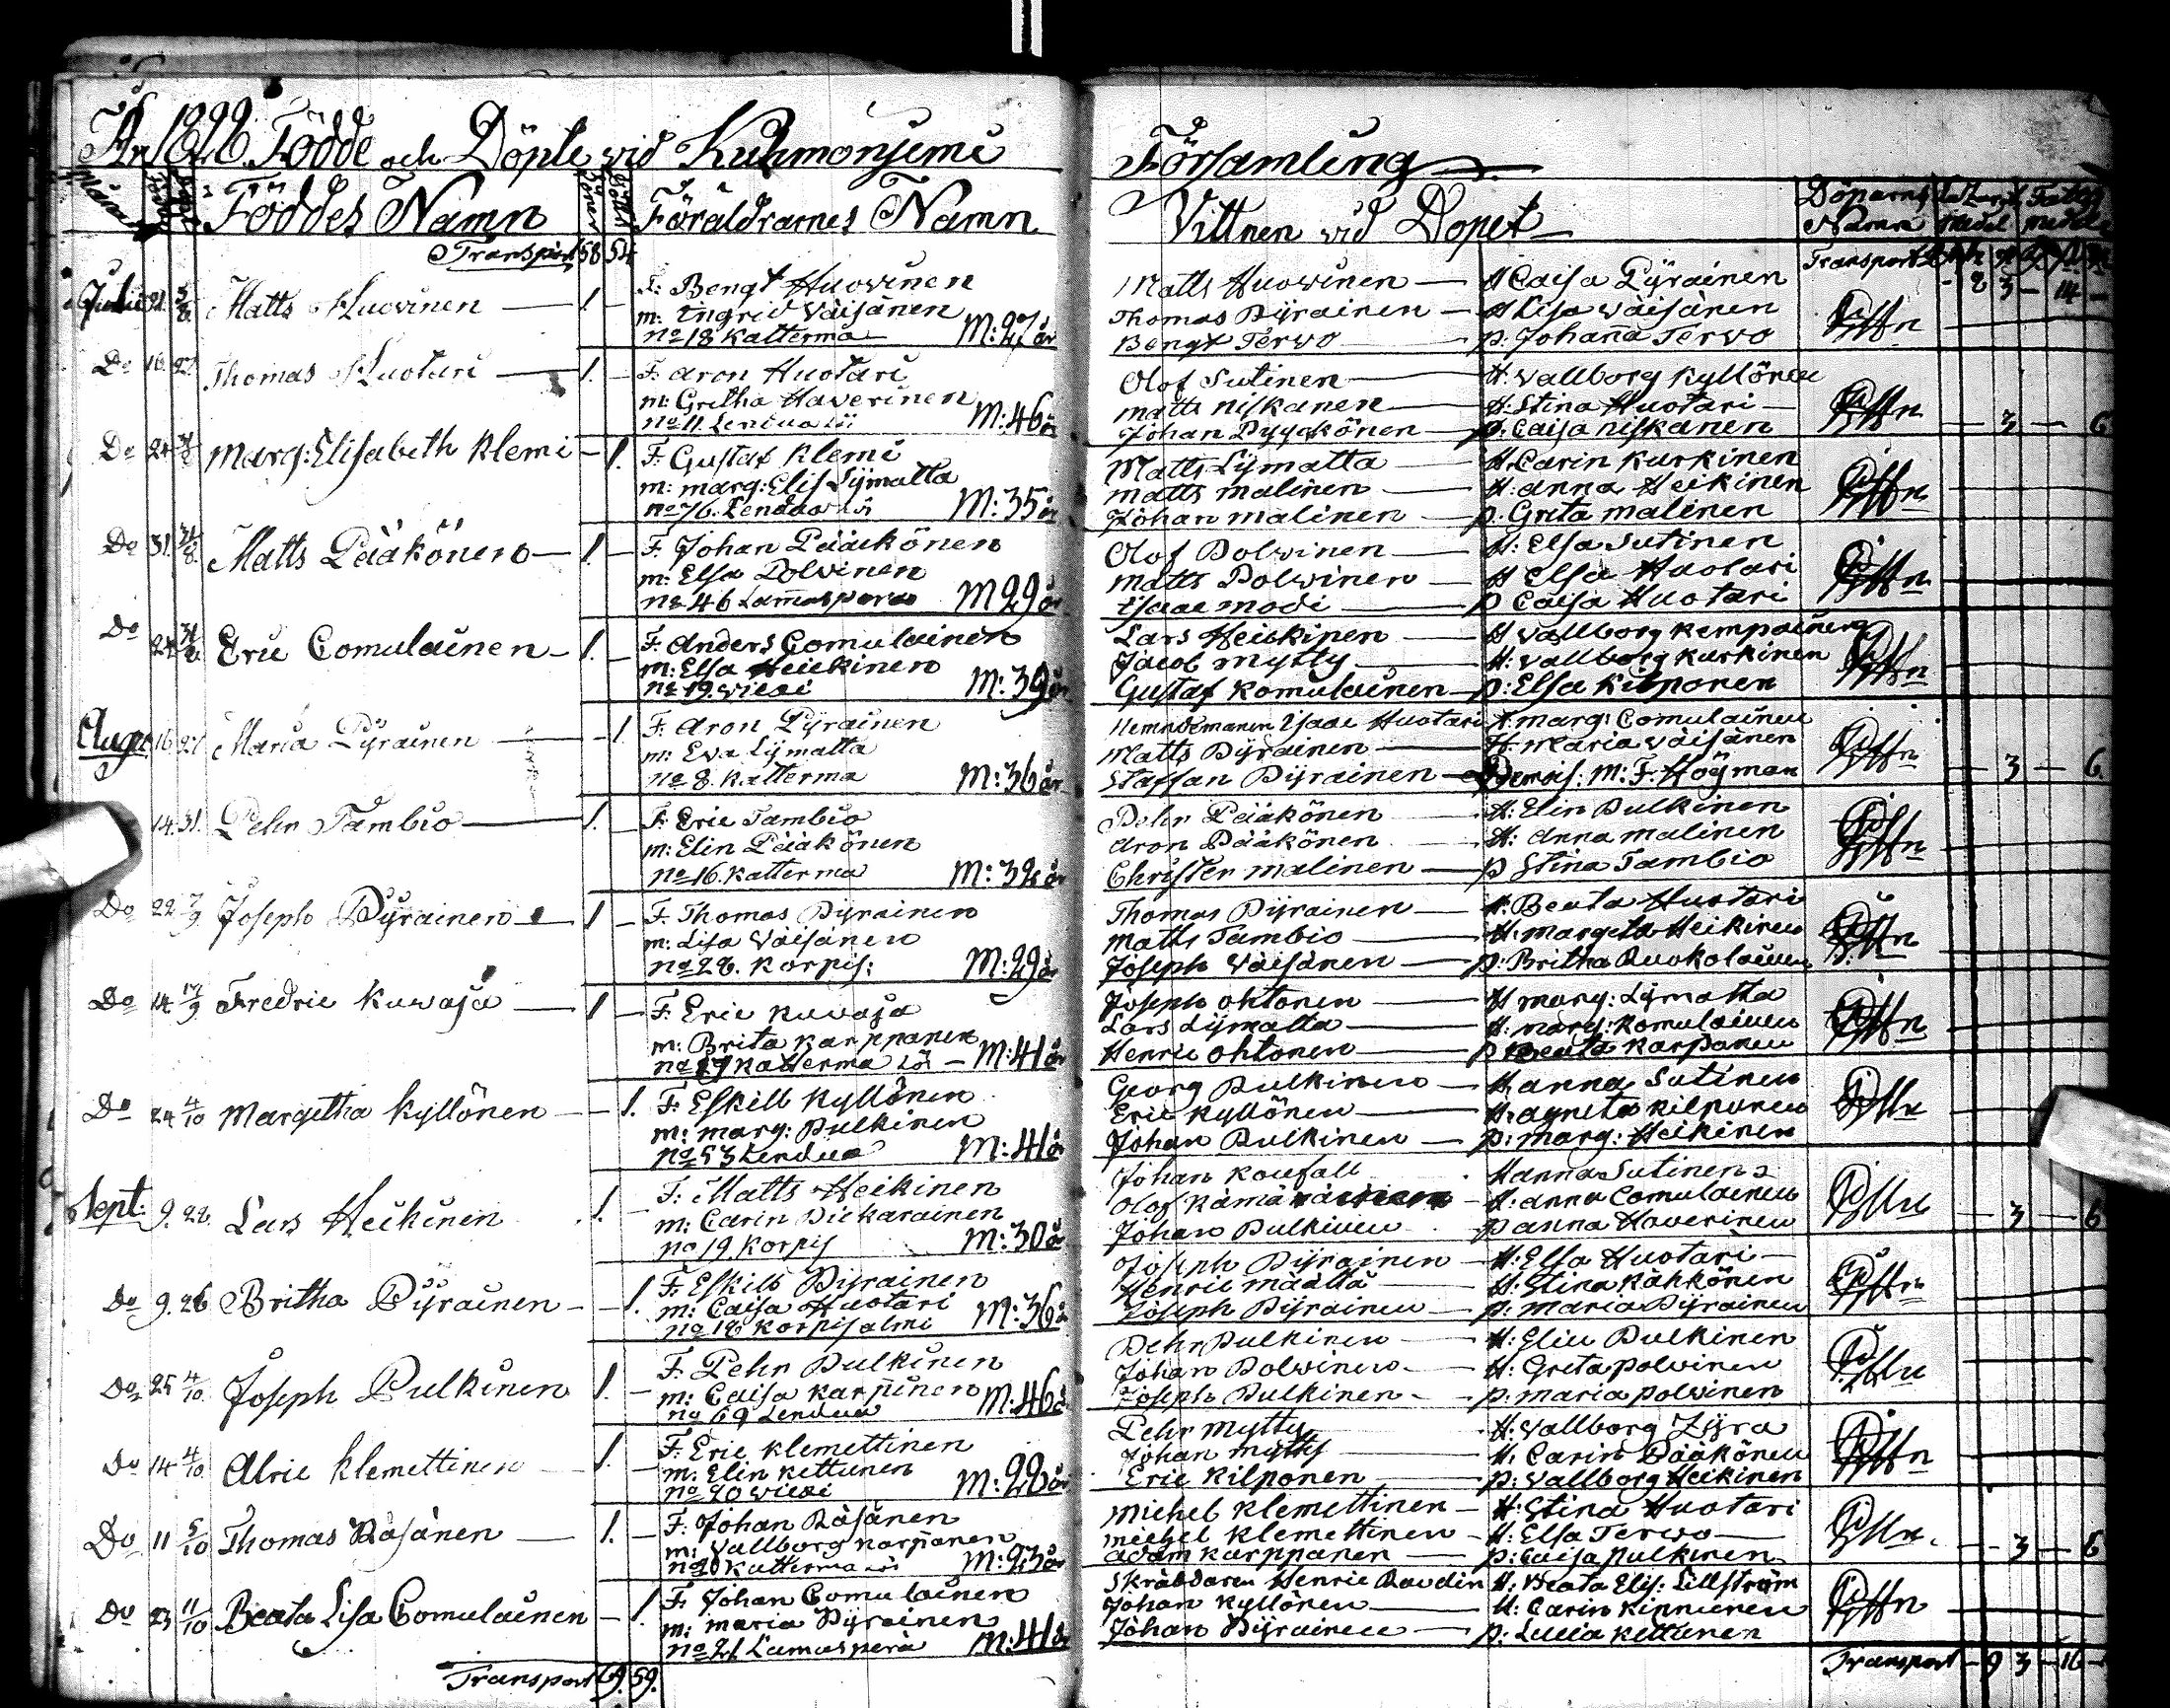 Födde och Döpte vid Kuhmonjemi Församling
Föddes Namn Föräldrarnes Namn Vittnen vid Dopet Döparns Namn
Transport 58 54 Transport
Julii 21. Matts Huovinen 1. F: Bengt Huovinen Matts Huovinen H Caisa Pÿrainen 2 3 14
m: Ingrid Väisänen Thomas Pÿrainen H Lisa Väisänen
No 18 Katterma M: 27 år Bengt Tervo p: Johanna Tervo
Do 16. 27. Thomas Huotari 1. F: Aron Huotari Olof Sutinen H: Vallborg Kyllönen
m: Gretha Haverinen Matts Niskanen H: Stina Huotari 3 6
No 11. Lendua M: 46 år Johan Pyykönen p: Caisa Niskanen
Do 24 Marg: Elisabeth Klemi 1. F: Gustaf Klemi Matts Lÿmatta H Carin Kurkinen
m: Marg: Elis Lÿmatta Matts Malinen H: Anna Heikinen
No 76. Lendua M: 35 år Johan Malinen p: Greta Malinen
Do 31. Matts Pääkönen 1. F: Johan Pääkönen Olof Polvinen H: Elsa Sutinen
m: Elsa Polvinen Matts Polvinen H Elsa Huotari
No 46 Lamaspera M 29 år Isaac Modi p Caisa Huotari
Do 24 Eric Comulainen 1. F: Anders Comulainen Lars Heikinen H Vallborg Kempainen
m: Elsa Heikinen Jacob Mytty H: Vallborg Kurkinen
No 19. Viexi M: 39 år Gustaf Komulainen p: Elsa Kilponen
Aug. 16. 27. Maria Pÿrainen 1 F: Aron Pÿrainen Isaac Huotari H: Marg: Comulainen
m: Eva Lÿmatta Matts Pÿrainen H Maria Väisänen
No 8. Katterma M: 36 år Staffan Pÿrainen Demois: M: F. Höÿman 3 6.
14. 31. Pehr Tambio 1. F: Eric Tambio Pehr Pääkönen H: Elin Pulkinen
m: Elin Pääkönen Aron Pääkönen H: Anna Malinen
No 16. Katterma M: 32 år Christer Malinen p Stina Tambio
Do 22 7/9 Joseph Pÿrainen 1 F: Thomas Pÿrainen Thomas Pÿrainen H: Beata Huotari
m: Lisa Väisänen Matts Tambio H: Margeta Heikinen
No 28. Korpis: M: 29 år Joseph Väisänen p: Britha Ruokolainen
Do 14 17/9 Fredric Kuvaja 1 F: Eric Kuvaja Joseph Ohtonen H Marg: Lÿmatta
m: Brita Karppanen Lars Lÿmatta H: Marg: Komulainen
Katterma M: 41 år Henric Ohtonen p Beata Karpanen
Do 24 4/10 Margetha Kyllönen 1. F: Eskill Kyllönen Georg Pulkinen H: Anna Sutinen
m: Marg: Pulkinen Eric Kyllönen H: Agneta Kilponen
No 53 Lendua M: 41 år Johan Pulkinen p: Marg: Heikinen
Sept: 9. 22. Lars Heikinen 1. F: Matts Heikinen Johan H Anna Sutinen
m: Carin Pickarainen Olof H: Anna Comulainen
No 19 Korpis M: 30 år Johan Pulkinen p Anna Haverinen 3 6
Do 9. 26 Britha Pÿrainen 1. F: Eskill Pÿrainen Joseph Pÿrainen H: Elsa Huotari
m: Caisa Huotari Henric Määttä H: Stina Käkkönen
No 18 Korpisalmi M: 36 år Joseph Pÿrainen p: Maria Pÿrainen
Do 25 4/10 Joseph Pulkinen 1. F: Pehr Pulkinen Pehr Pulkinen H: Elin Pulkinen
m: Caisa Karpinen M: 46 år Johan Polvinen H: Greta Polvinen
No 69 Lendua Joseph Pulkinen p: Maria Polvinen
Do 14 4/10 Alric Klemettinen 1. F: Eric Klemettinen Pehr Mytty H: Vallborg Zÿra
m: Elin Kettunen Johan Mytty H: Carin Pääkönen
No 20 Viexi M: 28 år Eric Kilponen p: Vallborg Heikinen
Do 11 5/10 Thomas Räsänen 1. F: Johan Räsänen Michel Klemettinen H: Stina Huotari
m: Vallborg Karpanen Michel Klemettinen H: Elsa Tervo 3 6
Katterma M: 23 år Adam Karppanen p: Caisa Pulkinen
Do 23 11/10 Beata Lisa Comulainen 1 F: Johan Comulainen Skräddaren Henric Raudin H: Beata Elis: Lillström
m: Maria Pÿrainen Johan Kyllönen H: Carin Kinnunen
No 21 Lamaspera M: 41 år Johan Pÿrainen p: Lucia Kettunen
Transport 69. 59. Transport 9 3 16